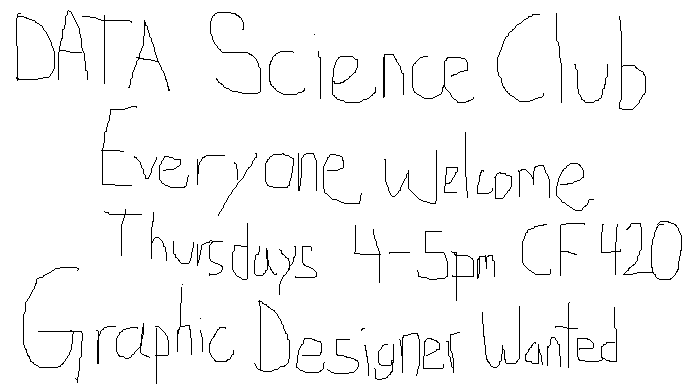 DATA Science Club
Everyone Welcome
Thursdays 4-5pm CF 420
Graphic Designer Wanted